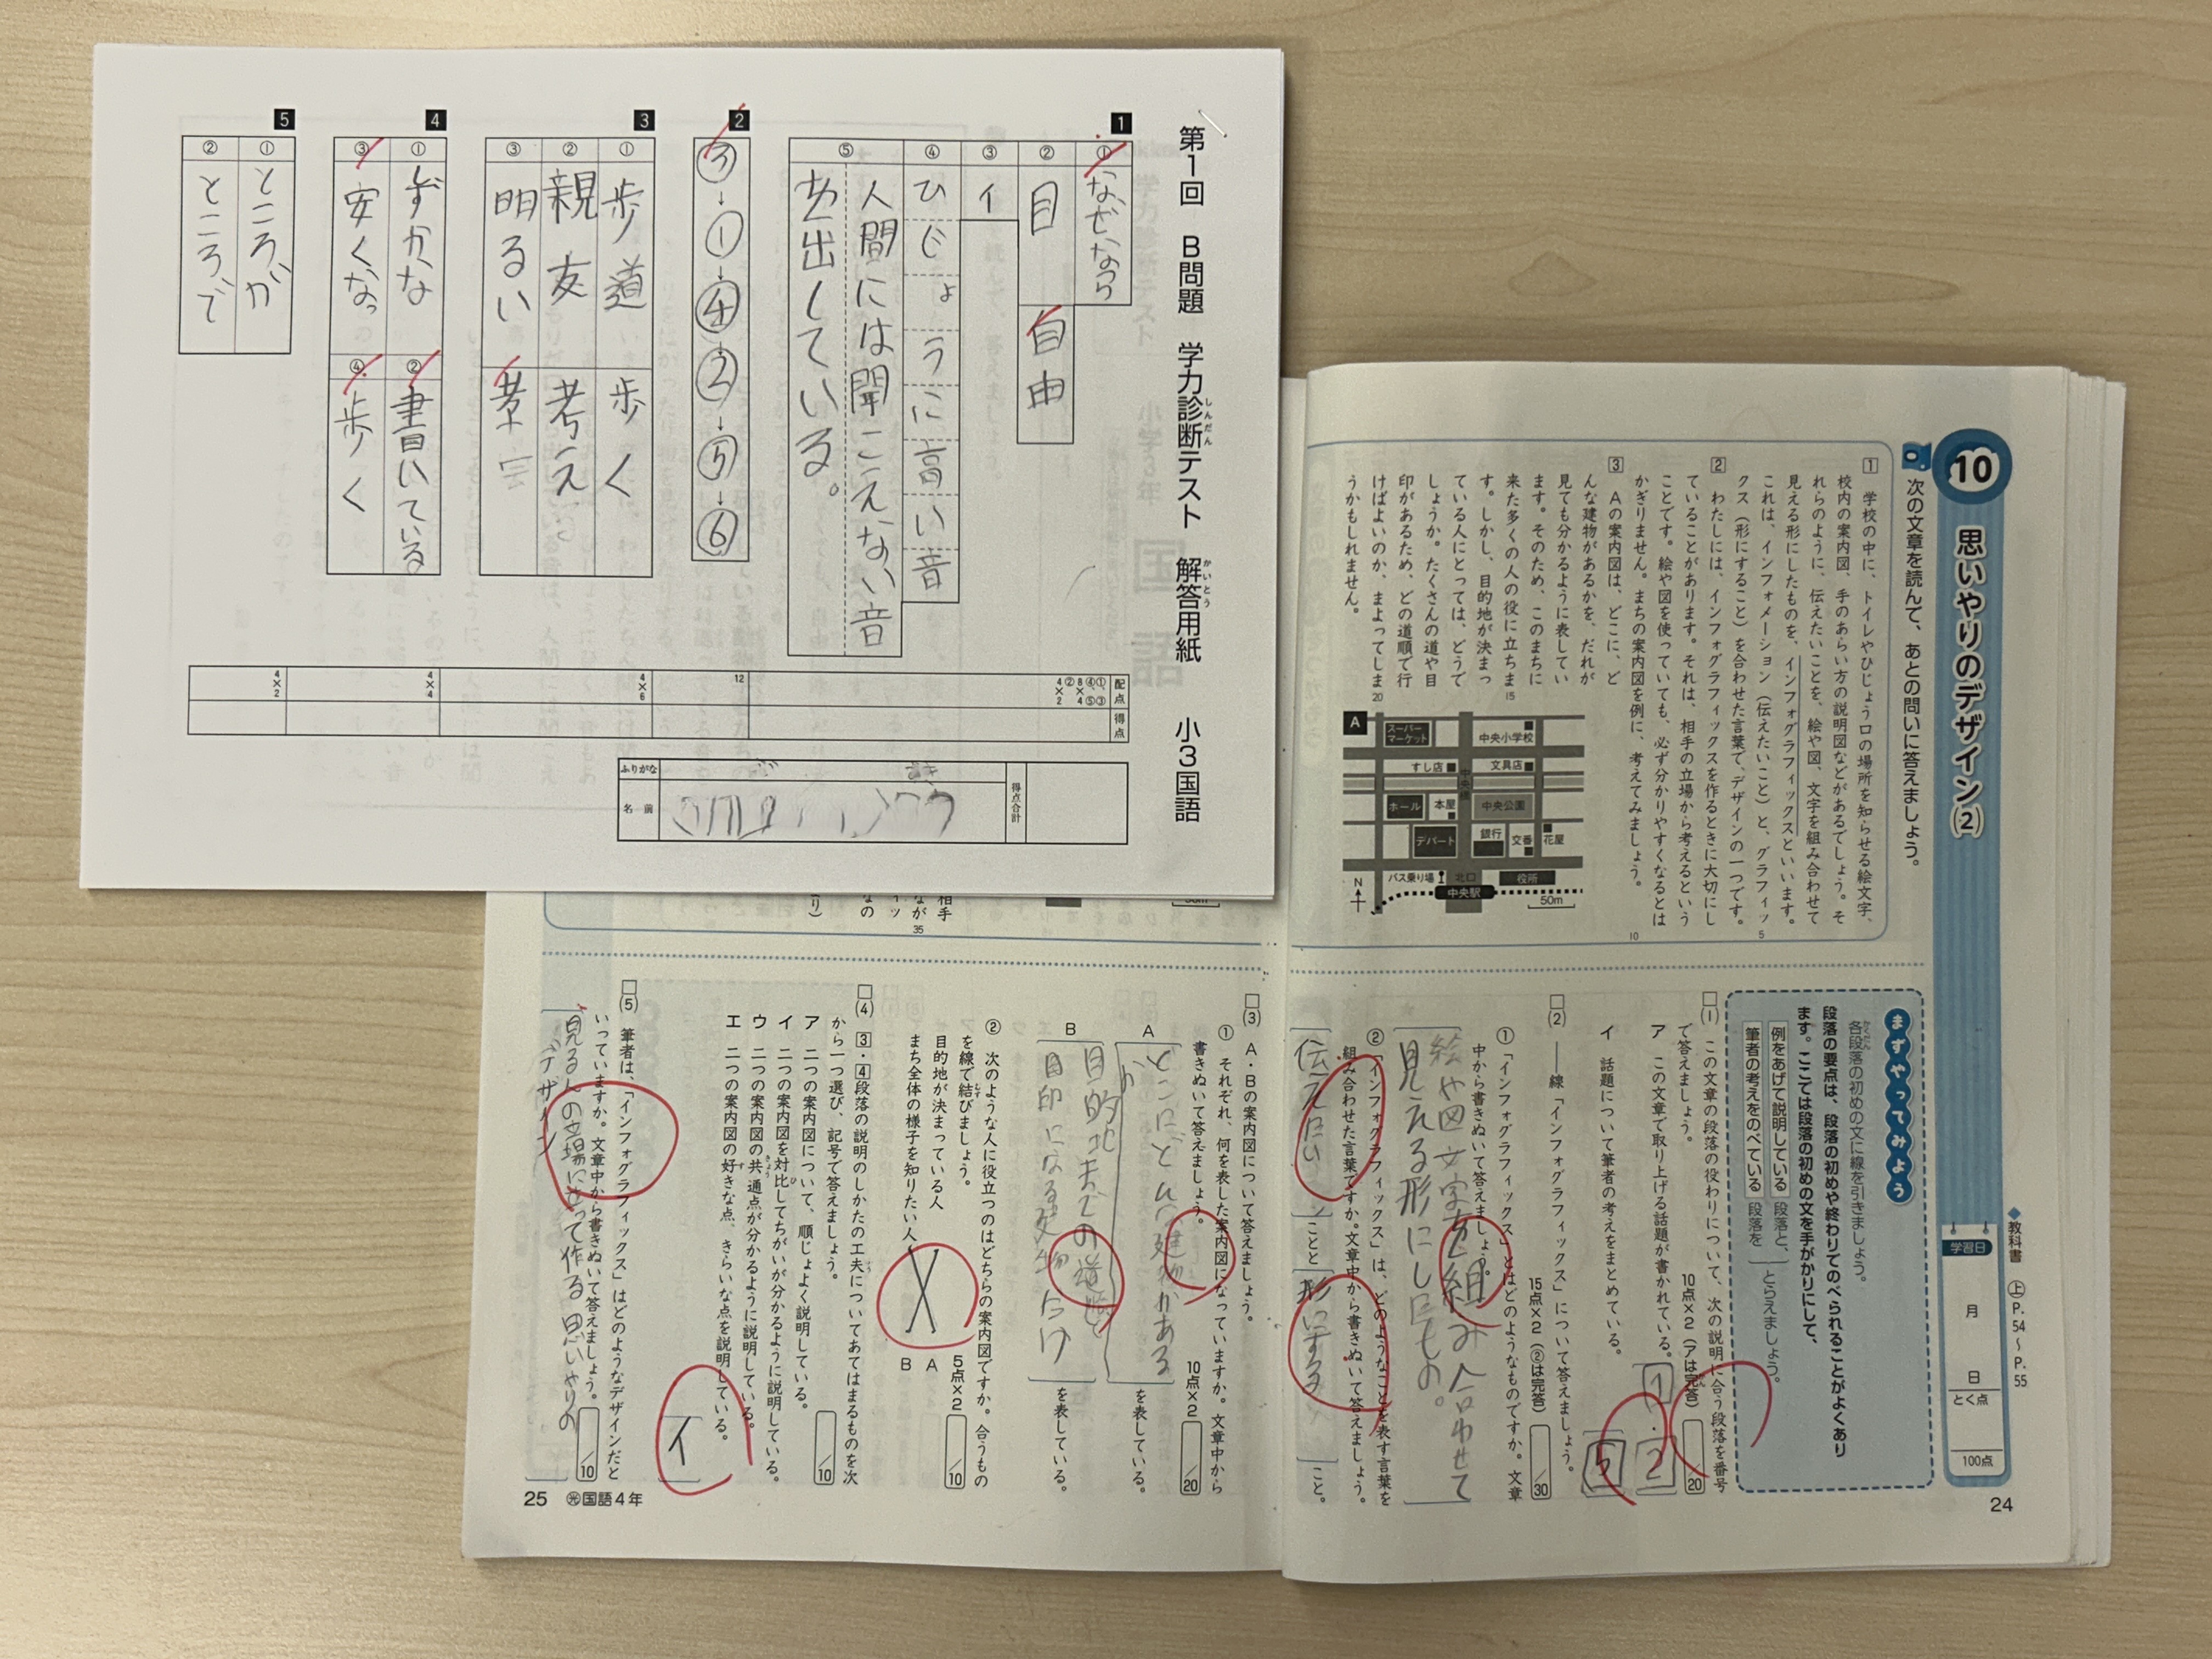 第1回 B問題 学力診断テスト 解答用紙 小3国語
しんだん
かいとう
1
① なぜなら
② 目 自由
③ イ
④ ひじょうに高い音
⑤ 人間には聞こえない音
を出している。
2
③→①→④→②→⑤→⑥
3
① 歩道 歩く
② 親友 考える
③ 明るい
4
① しずかな
② 書いている
③ 安くなっ
④ 歩く
5
① ところが
② ところで
配点
得点
①、③
④、⑤
8×4
②
4×2
12
4×6
4×4
4×2
ふりがな
名前
得点合計
10 思いやりのデザイン(2)
◆教科書 上P.54～P.55
学習日
月
日
とく点
100点
次の文章を読んで、あとの問いに答えましょう。
1 学校の中に、トイレやひじょう口の場所を知らせる絵文字、
校内の案内図、手のあらい方の説明図などがあるでしょう。そ
れらのように、伝えたいことを、絵や図、文字を組み合わせて
見える形にしたものを、インフォグラフィックスといいます。
これは、インフォメーション（伝えたいこと）と、グラフィッ
クス（形にすること）を合わせた言葉で、デザインの一つです。
2 わたしには、インフォグラフィックスを作るときに大切にし
ていることがあります。それは、相手の立場から考えるという
ことです。絵や図を使っていても、必ず分かりやすくなるとは
かぎりません。まちの案内図を例に、考えてみましょう。
3 Aの案内図は、どこに、ど
んな建物があるかを、だれが
見ても分かるように表してい
ます。そのため、このまちに
来た多くの人の役に立ちま
す。しかし、目的地が決まっ
ている人にとっては、どうで
しょうか。たくさんの道や目
印があるため、どの道順で行
けばよいのか、まよってしま
うかもしれません。
5
10
15
20
35
A
スーパーマーケット
中央小学校
すし店
文具店
中央橋
ホール
本屋
中央公園
デパート
銀行
交番
花屋
バス乗り場
北口
役所
中央駅
N
50m
まずやってみよう
各段落の初めの文に線を引きましょう。
段落の要点は、段落の初めや終わりでのべられることがよくあり
ます。ここでは段落の初めの文を手がかりにして、
例をあげて説明している 段落と、
筆者の考えをのべている 段落を
とらえましょう。
(1) この文章の段落の役わりについて、次の説明に合う段落を番号
で答えましょう。 10点×2（アは完答） /20
ア この文章で取り上げる話題が書かれている。 1 2
イ 話題について筆者の考えをまとめている。 5
(2) ――線「インフォグラフィックス」について答えましょう。
15点×2（②は完答） /30
① 「インフォグラフィックス」とはどのようなものですか。文章
中から書きぬいて答えましょう。
絵や図、文字を組み合わせて
見える形にしたもの。
② 「インフォグラフィックス」は、どのようなことを表す言葉を
組み合わせた言葉ですか。文章中から書きぬいて答えましょう。
伝えたい ことと 形にする こと。
(3) A・Bの案内図について答えましょう。
① それぞれ、何を表した案内図になっていますか。文章中から
書きぬいて答えましょう。 10点×2 /20
A どこにどんな建物がある
か を表している。
B 目的地までの道順と
目印になる建物だけ を表している。
② 次のような人に役立つのはどちらの案内図ですか。合うもの
を線で結びましょう。 5点×2 /10
目的地が決まっている人 A
まち全体の様子を知りたい人 B
(4) 3・4段落の説明のしかたの工夫についてあてはまるものを次
から一つ選び、記号で答えましょう。 /10
ア 二つの案内図について、順じょよく説明している。
イ 二つの案内図を対比してちがいが分かるように説明している。
ウ 二つの案内図の共通点が分かるように説明している。
エ 二つの案内図の好きな点、きらいな点を説明している。
イ
(5) 筆者は、「インフォグラフィックス」はどのようなデザインだと
いっていますか。文章中から書きぬいて答えましょう。 /10
見る人の立場に立って作る思いやりの
デザイン
24
25 国語4年